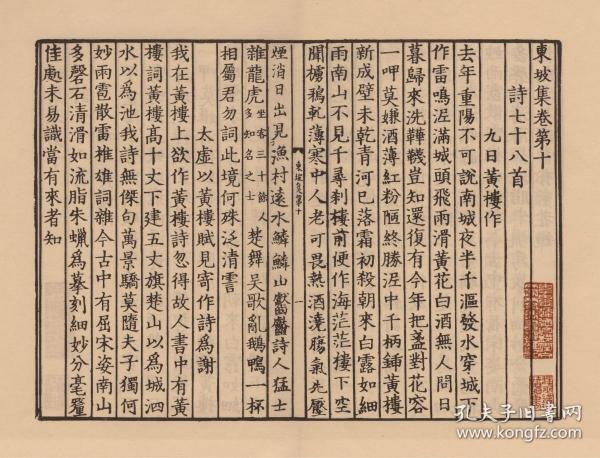 東坡集卷第十
詩七十八首
九日黃樓作
去年重陽不可說南城夜半千漚發水穿城下
作雷鳴泥滿城頭飛雨滑黃花白酒無人問日
暮歸來洗鞾韈豈知還復有今年把盞對花容
一呷莫嫌酒薄紅粉陋終勝泥中千柄鍤黃樓
新成壁未乾青河已落霜初殺朝來白露如細
雨南山不見千尋刹樓前便作海茫茫樓下空
聞櫓鵶軋薄寒中人老可畏熱酒澆膓氣先壓
東坡集第十
一
煙消日出見漁村遠水鱗鱗山齾齾詩人猛士
雜龍虎坐客三十餘人多知名之士楚舞吳歌亂鵝鴨一杯
相屬君勿詞此境何殊泛清霅
太虛以黃樓賦見寄作詩爲謝
我在黃樓上欲作黃樓詩忽得故人書中有黃
樓詞黃樓髙十丈下建五丈旗楚山以爲城泗
水以爲池我詩無傑句萬景驕莫隨夫子獨何
妙雨雹散雷椎雄詞雜今古中有屈宋姿南山
多磬石清滑如流脂朱蠟爲摹刻細妙分毫釐
佳處未易識當有來者知
孔夫子旧书网
www.kongfz.com